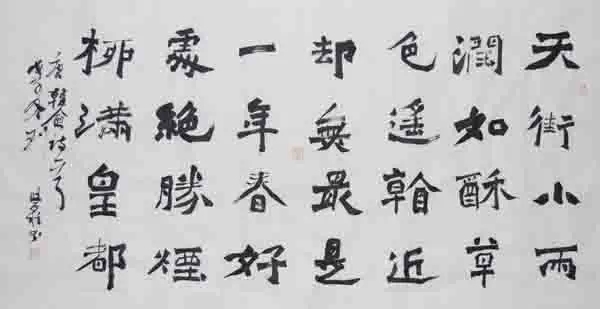 天街小雨
潤如酥草
色遥看近
却無最是
一年春好
處絕勝煙
柳滿皇都
唐韓愈詩一首
戊子